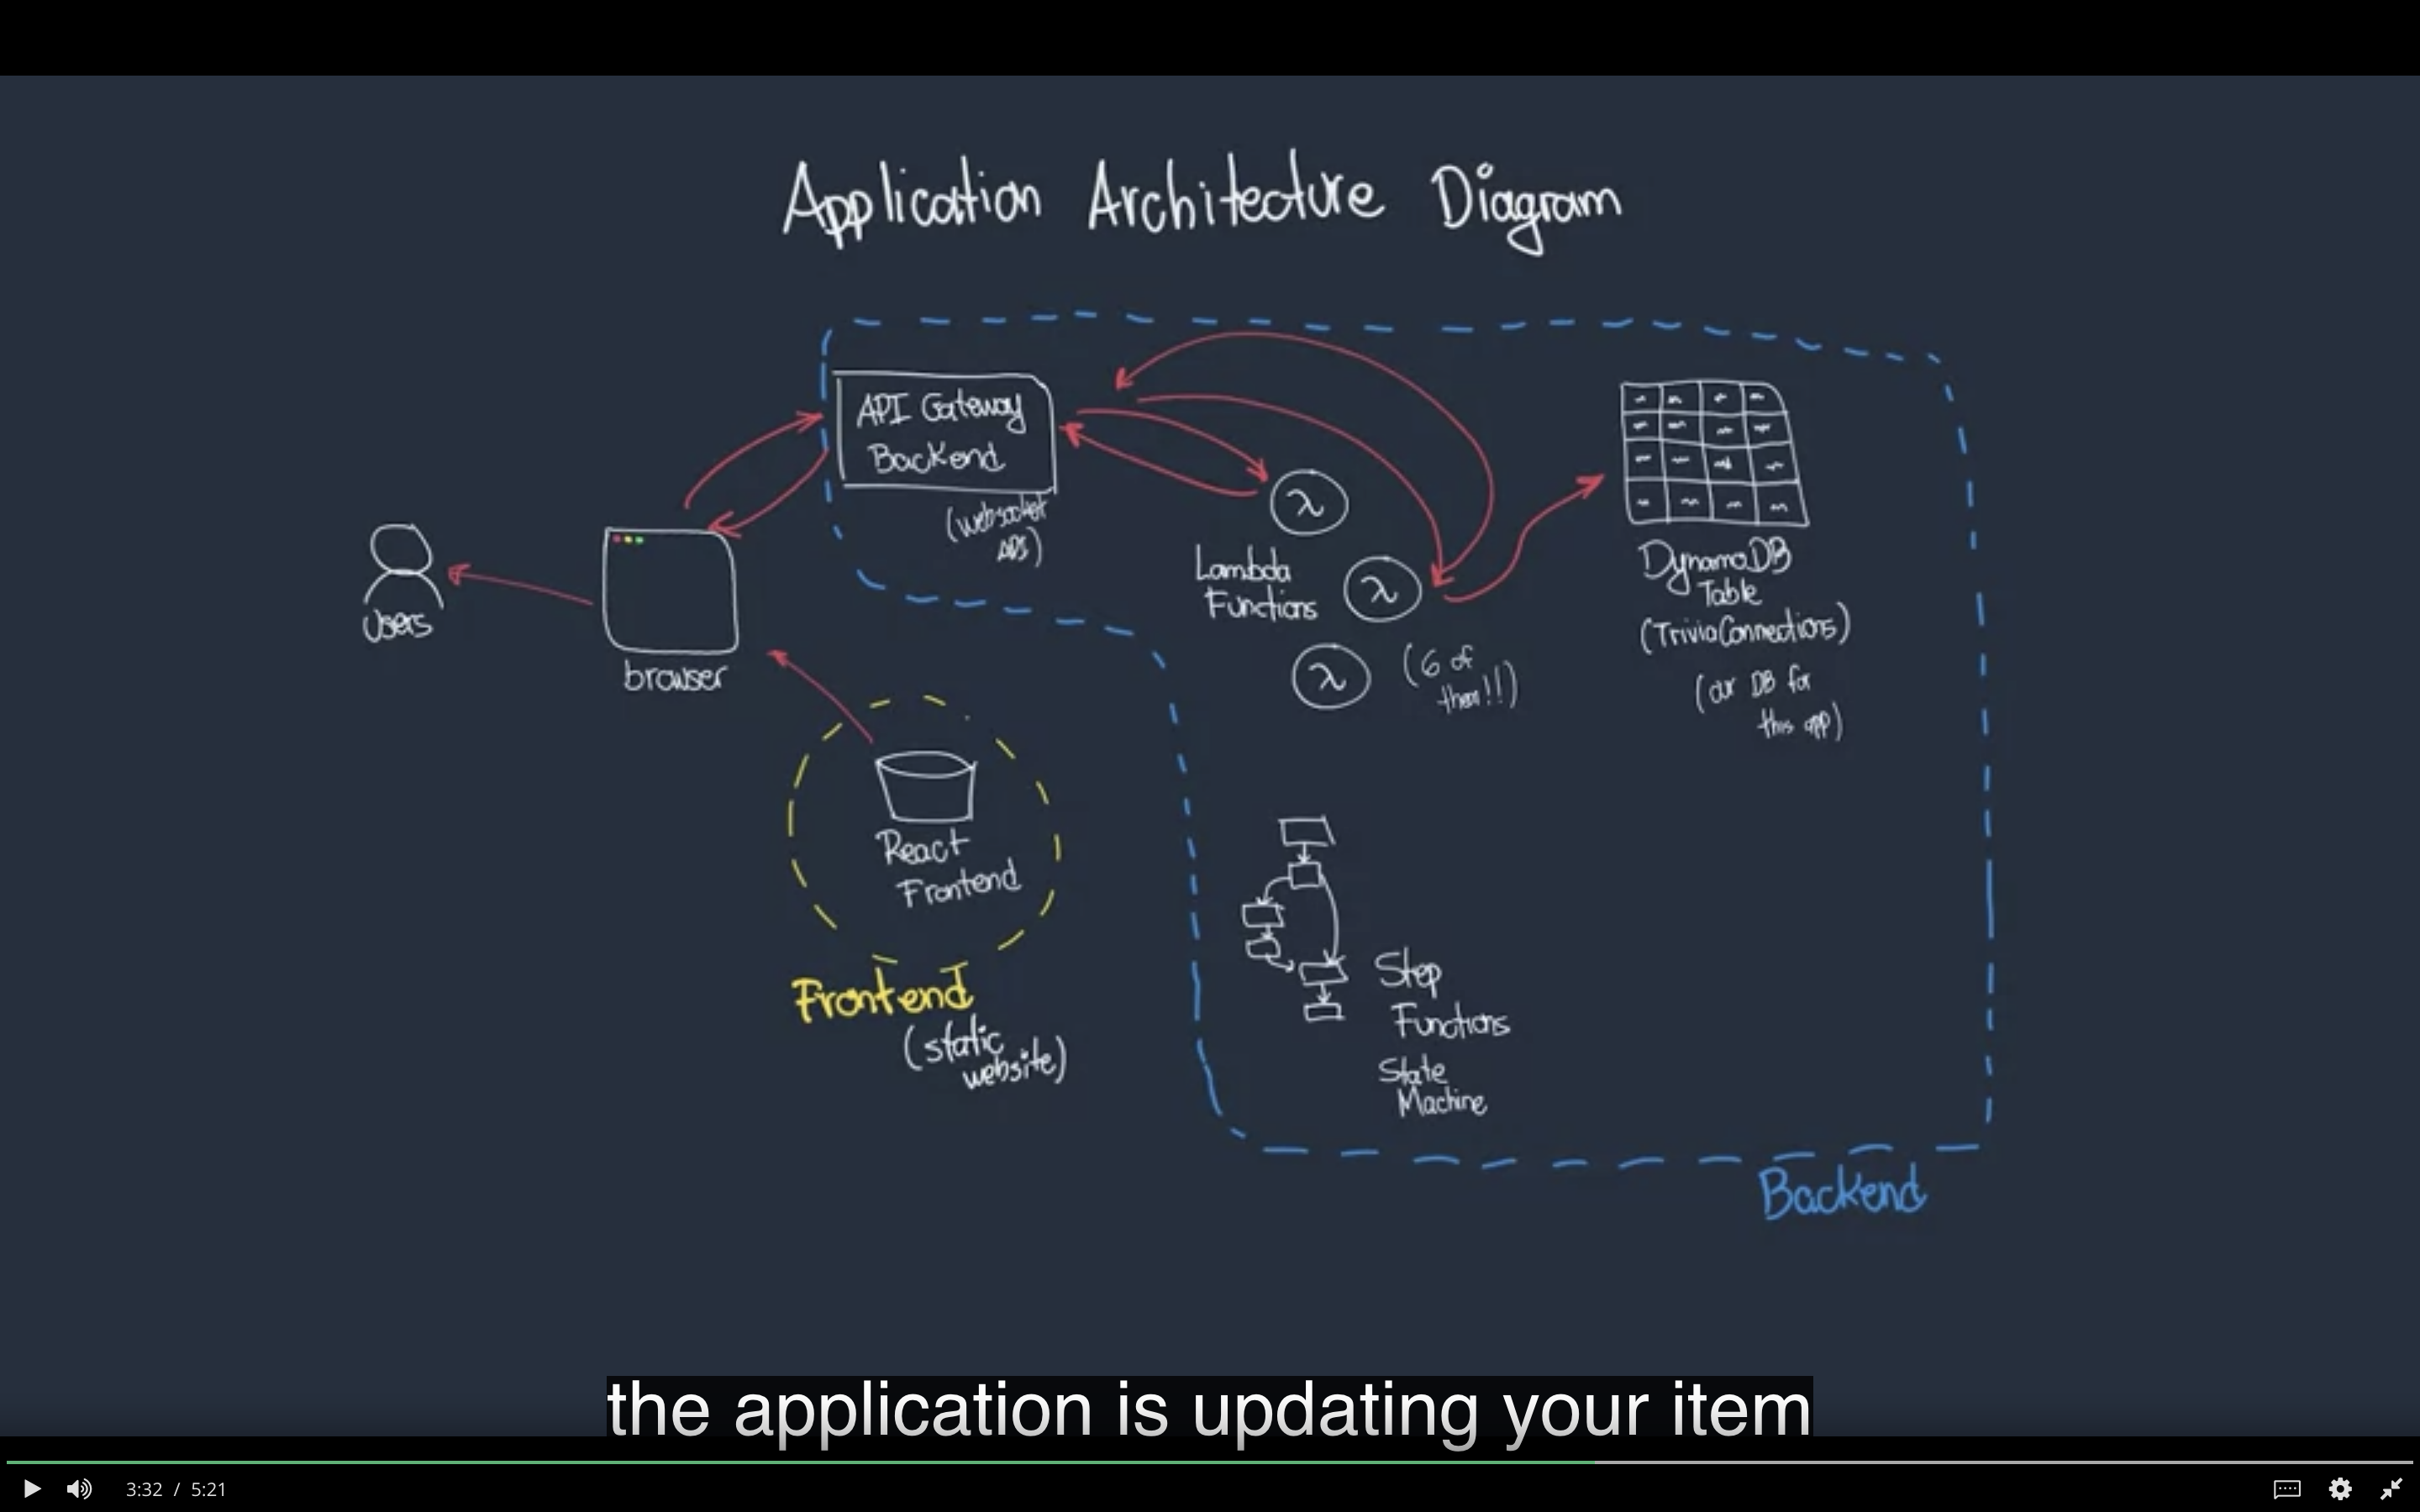 Application Architecture Diagram
API Gateway
Backend
(websocket
API)
Users
browser
λ
Lambda
Functions
λ
λ
(6 of
them!!)
DynamoDB
Table
(TriviaConnections)
(our DB for
this app)
React
Frontend
Frontend
(static
website)
Step
Functions
State
Machine
Backend
the application is updating your item
3:32 / 5:21